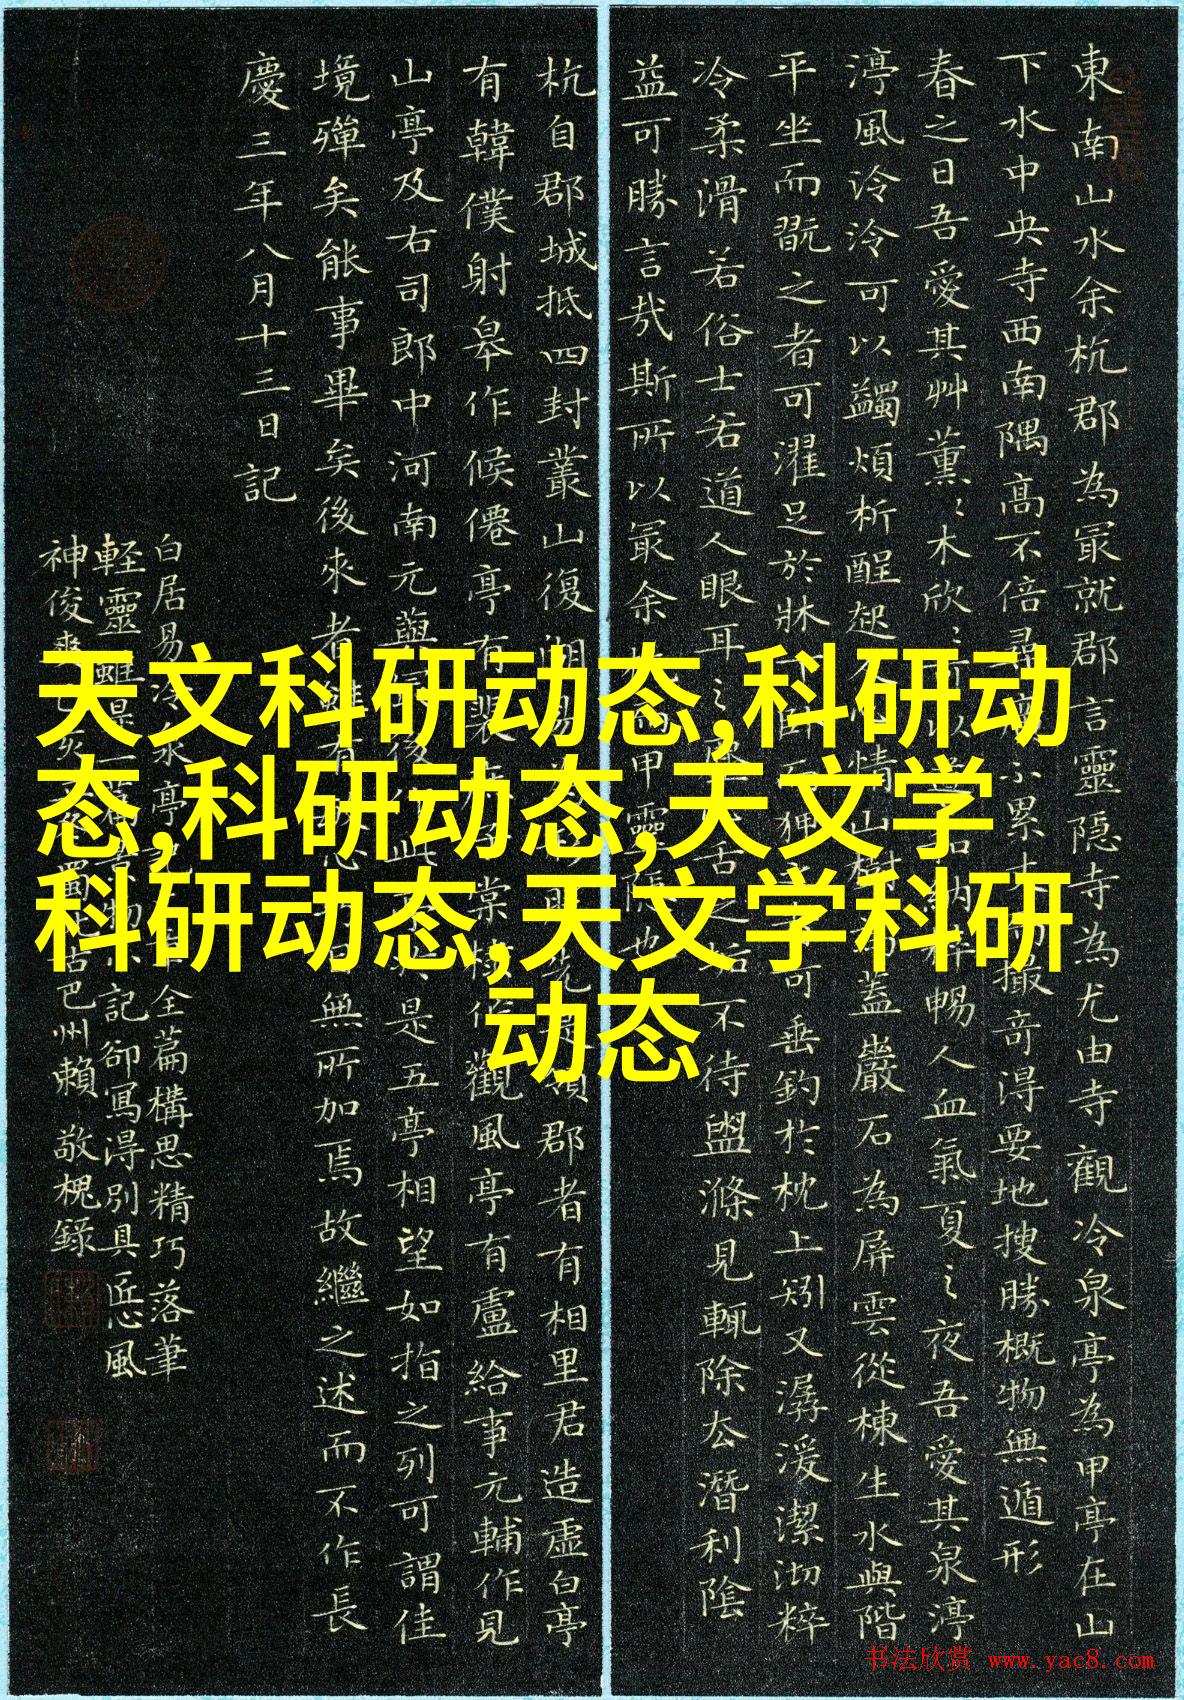 東南山水余杭郡為冣就郡言靈隐寺為尤由寺觀冷泉亭為甲亭在山
下水中央寺西南隅高不倍尋不累撮竒淂要地搜勝概物無遁形
春之日吾愛其艸薰〻木欣〻可以納粹暢人血氣夏之夜吾愛其泉渟
渟風泠泠可以蠲煩析酲起情山樹蓋巖石為屏雲從棟生水與階
平坐而翫之者可濯足於牀下臥而狎可垂釣於枕上矧又潺湲潔沏粹
冷柔滑若俗士若道人眼耳之舌之垢不待盥滌見輒除去潛利陰
益可勝言哉斯所以冣余杭而甲靈隱也
杭自郡城抵四封叢山復湖易領郡者有相里君造虛白亭
有韓僕射皋作候僊亭有裴棠棣作觀風亭有盧給事元輔作見
山亭及右司郎中河南元藇後此是五亭相望如指之列可謂佳
境殫矣能事畢矣後來者雖有無所加焉故繼之述而不作長
慶三年八月十三日記
白居易冷泉亭記全篇構思精巧落筆
軽靈雖是物小記卻寫淂別具匠心風
神俊爽巴州賴敬槐錄
天文科研动态,科研动
态,科研动态,天文学
科研动态,天文学科研
动态
书法欣赏 www.yac8.com